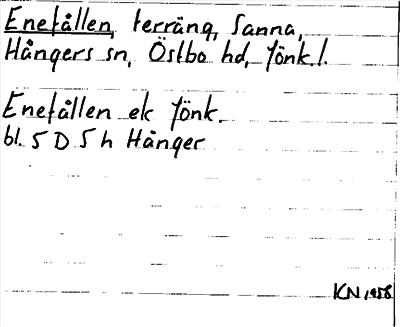 Enefållen, terräng, Sanna,
Hångers sn, Östbo hd, Jönk.l.
Enefållen ek Jönk.
bl. 5 D 5 h Hånger
KN, 1958